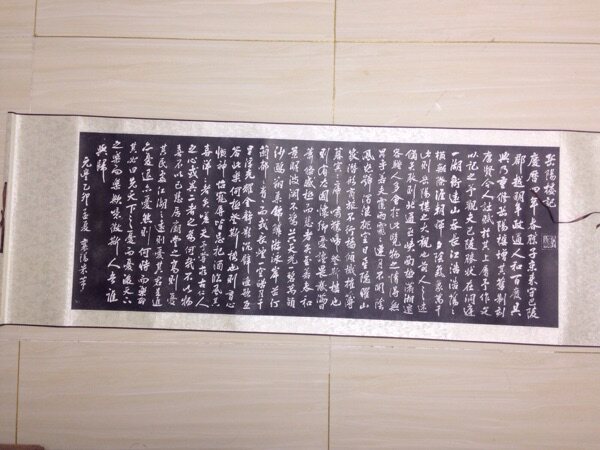 岳陽樓記
慶曆四年春滕子京謫守巴陵
郡越明年政通人和百廢具
興乃重修岳陽樓增其舊制刻
唐賢今人詩賦於其上屬予作文
以記之予觀夫巴陵勝狀在洞庭
一湖銜遠山吞長江浩浩湯湯
橫無際涯朝暉夕陰氣象萬千
此則岳陽樓之大觀也前人之述
備矣然則北通巫峽南極瀟湘遷
客騷人多會於此覽物之情得無
異乎若夫霪雨霏霏連月不開陰
風怒號濁浪排空日星隱耀山
岳潛形商旅不行檣傾楫摧薄
暮冥冥虎嘯猿啼登斯樓也
則有去國懷鄉憂讒畏譏滿目
蕭然感極而悲者矣至若春和
景明波瀾不驚上下天光一碧萬頃
沙鷗翔集錦鱗游泳岸芷汀
蘭郁郁青青而或長煙一空皓月千
里浮光耀金靜影沉璧漁歌互
答此樂何極登斯樓也則有心
曠神怡寵辱皆忘把酒臨風其
喜洋洋者矣嗟夫予嘗求古仁人
之心或異二者之為何哉不以物
喜不以己悲居廟堂之高則憂
其民處江湖之遠則憂其君是進
亦憂退亦憂然則何時而樂耶
其必曰先天下之憂而憂後天下
之樂而樂歟噫微斯人吾誰
與歸
元豐乙卯孟夏 襄陽米芾